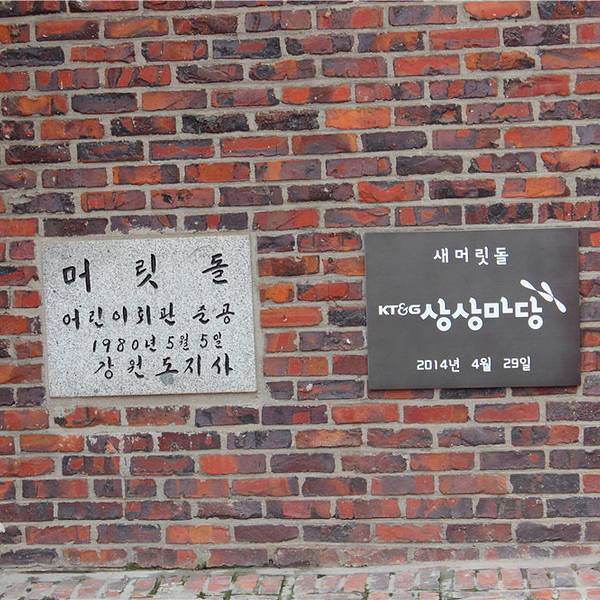 머릿돌
어린이회관 준공
1980년 5월 5일
강원도지사
새머릿돌
KT&G 상상마당
2014년 4월 29일